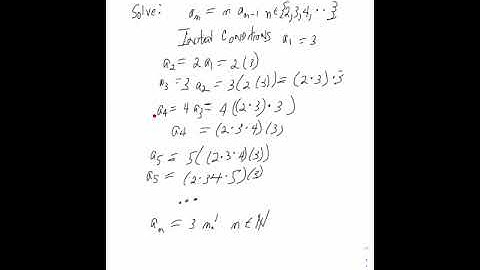 Solve: aₙ = n aₙ₋₁ n∈{2,3,4,⋯}
Initial Conditions a₁ = 3
a₂ = 2 a₁ = 2(3)
a₃ = 3 a₂ = 3(2(3)) = (2·3)·3
a₄ = 4 a₃ = 4((2·3)·3)
a₄ = (2·3·4)(3)
a₅ = 5((2·3·4)(3))
a₅ = (2·34·5)(3)
...
aₙ = 3 n! n∈ℕ